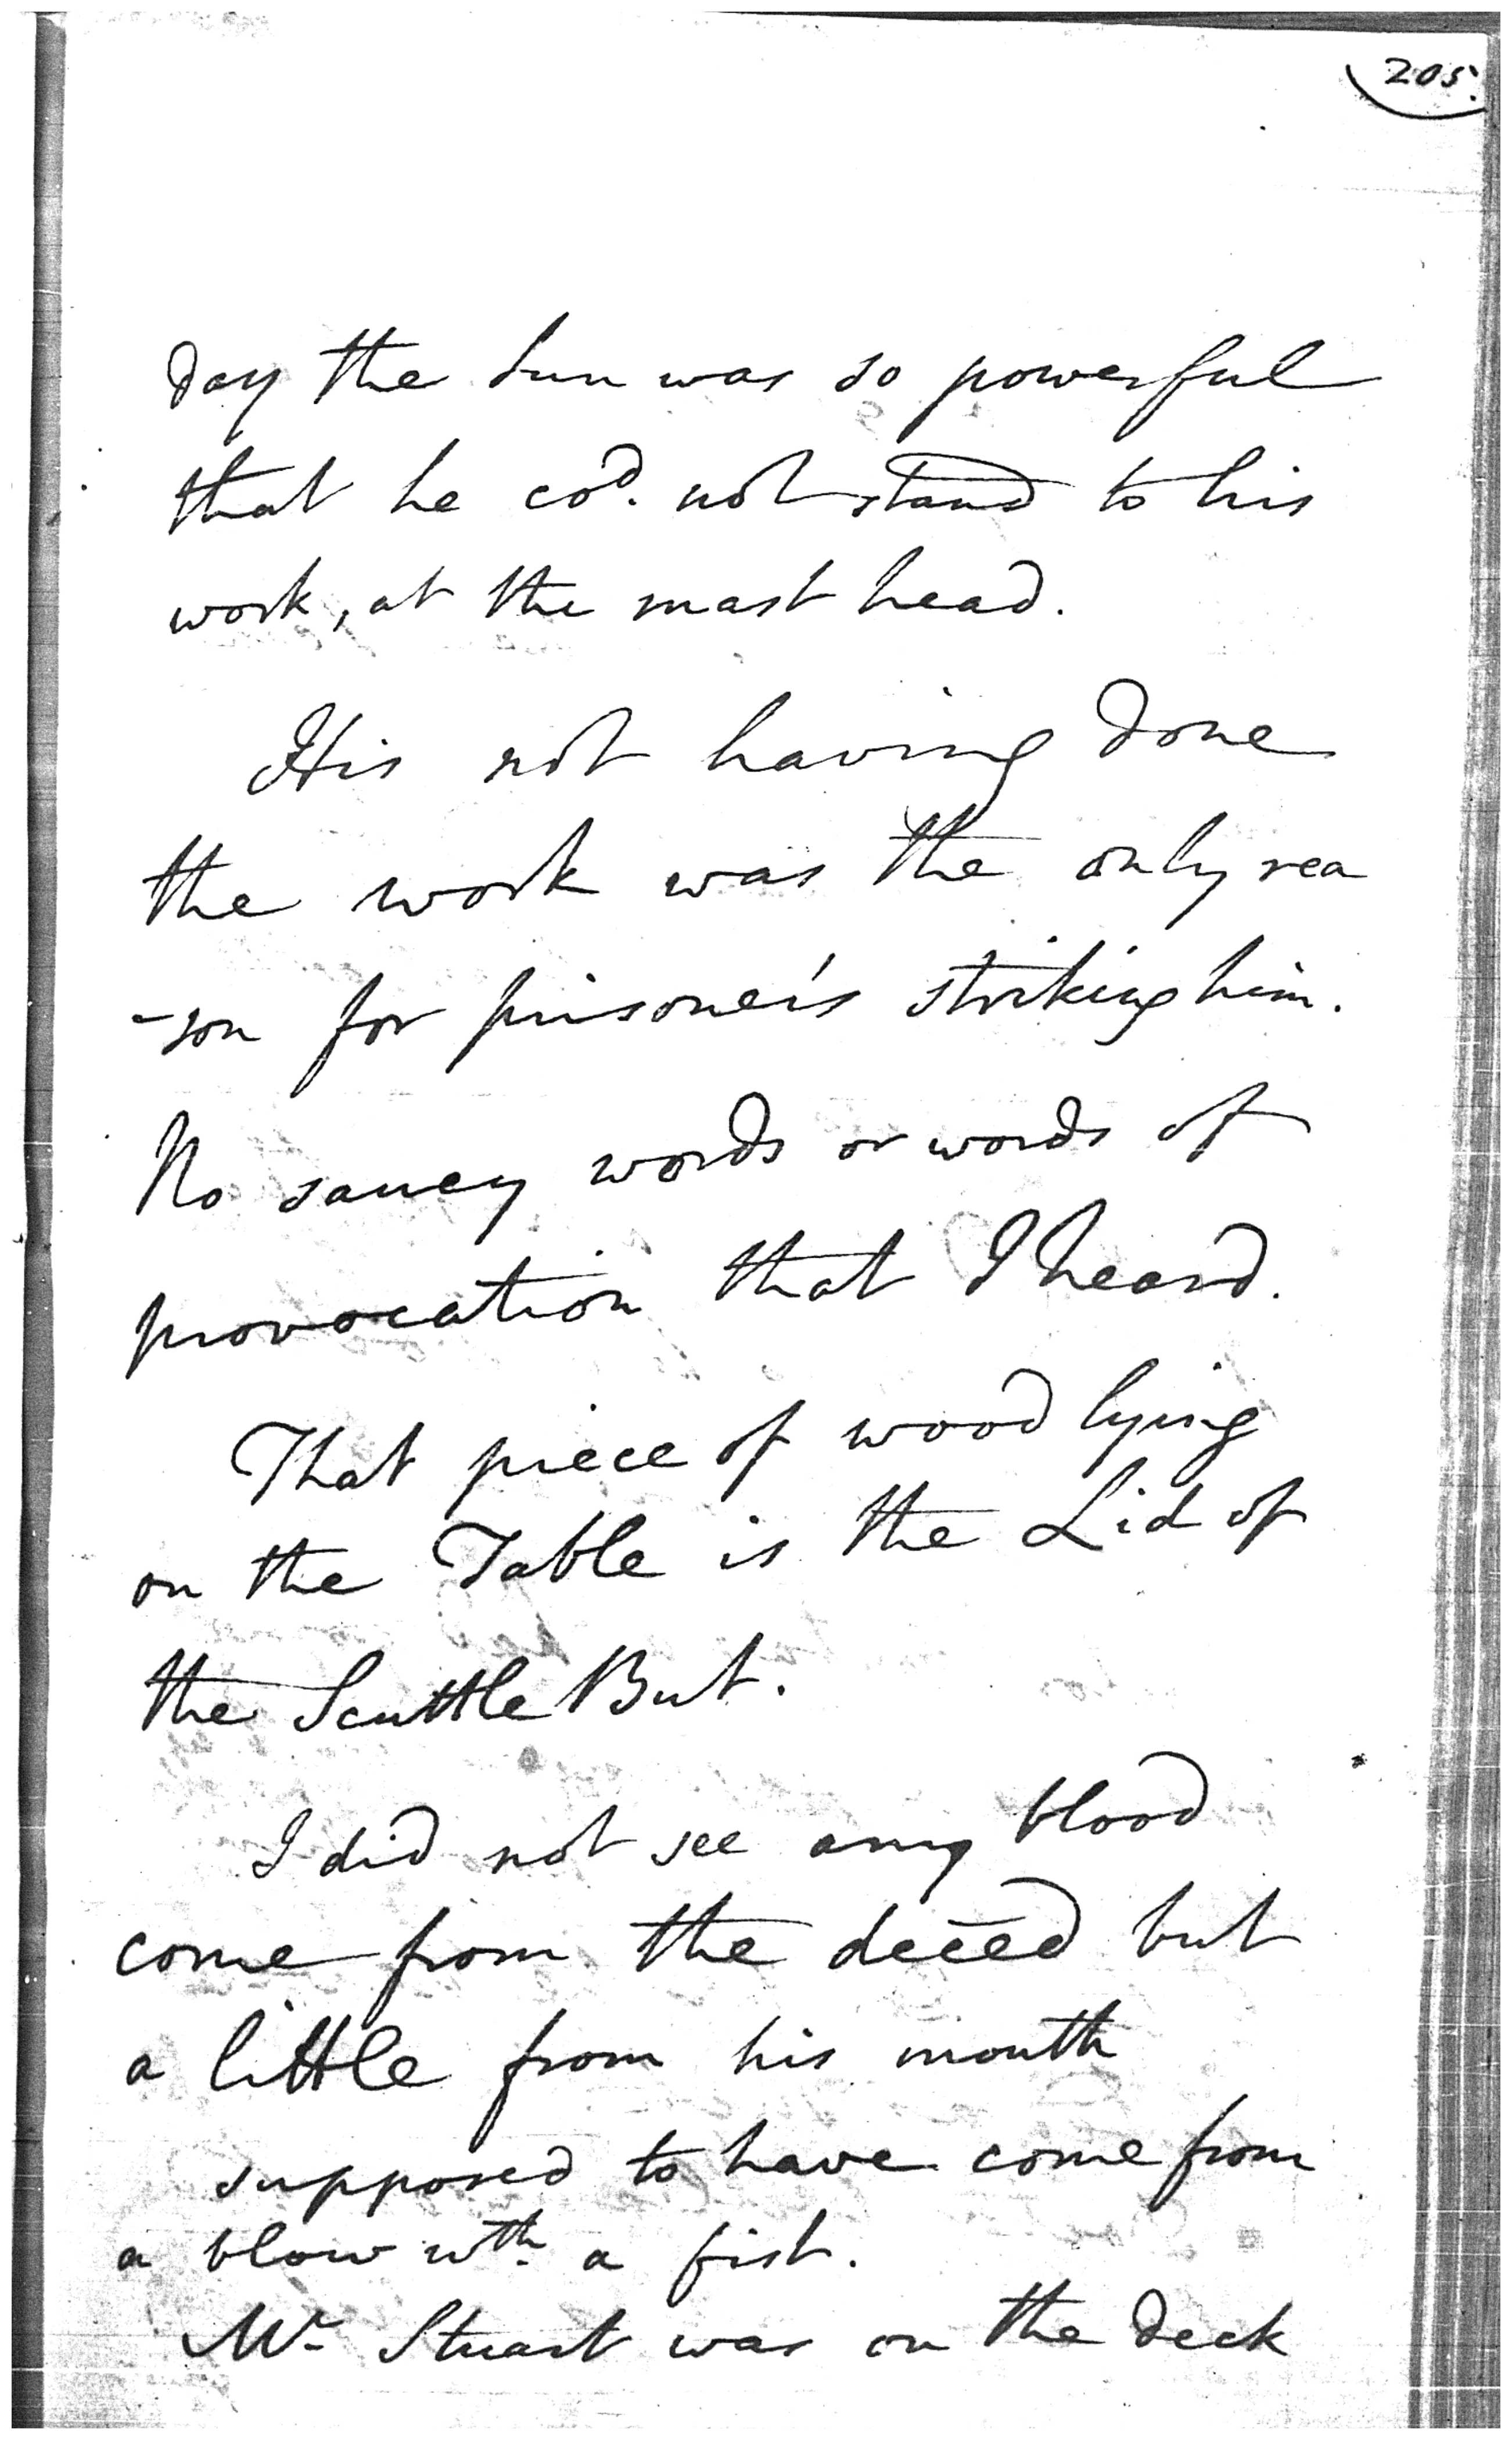 205.
day the Sun was so powerful
that he cod. not stand to his
work, at the mast head.
His not having done
the work was the only rea
-son for prisoner's striking him.
No saucy words or words of
provocation that I heard.
That piece of wood lying
on the Table is the Lid of
the Scuttle But.
I did not see any blood
come from the deced but
a little from his mouth
supposed to have come from
a blow wth. a fist.
Mr Stuart was on the deck